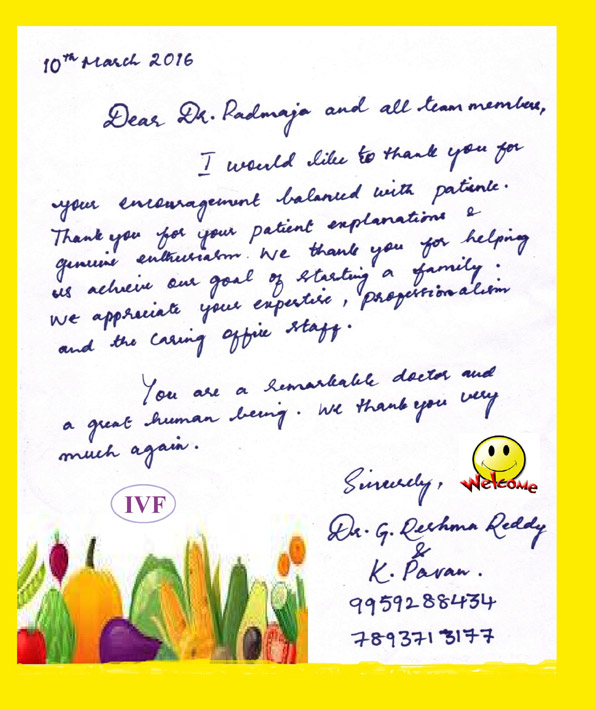 10th March 2016
Dear Dr. Padmaja and all team members,
I would like to thank you for
your encouragement balanced with patience.
Thank you for your patient explanations &
genuine enthusiasm. We thank you for helping
us achieve our goal of starting a family.
We appreciate your expertise, professionalism
and the caring office staff.
You are a remarkable doctor and
a great human being. We thank you very
much again.
Sincerely,
Welcome
IVF
Dr. G. Reshma Reddy
&
K. Pavan.
9959288434
7893713177